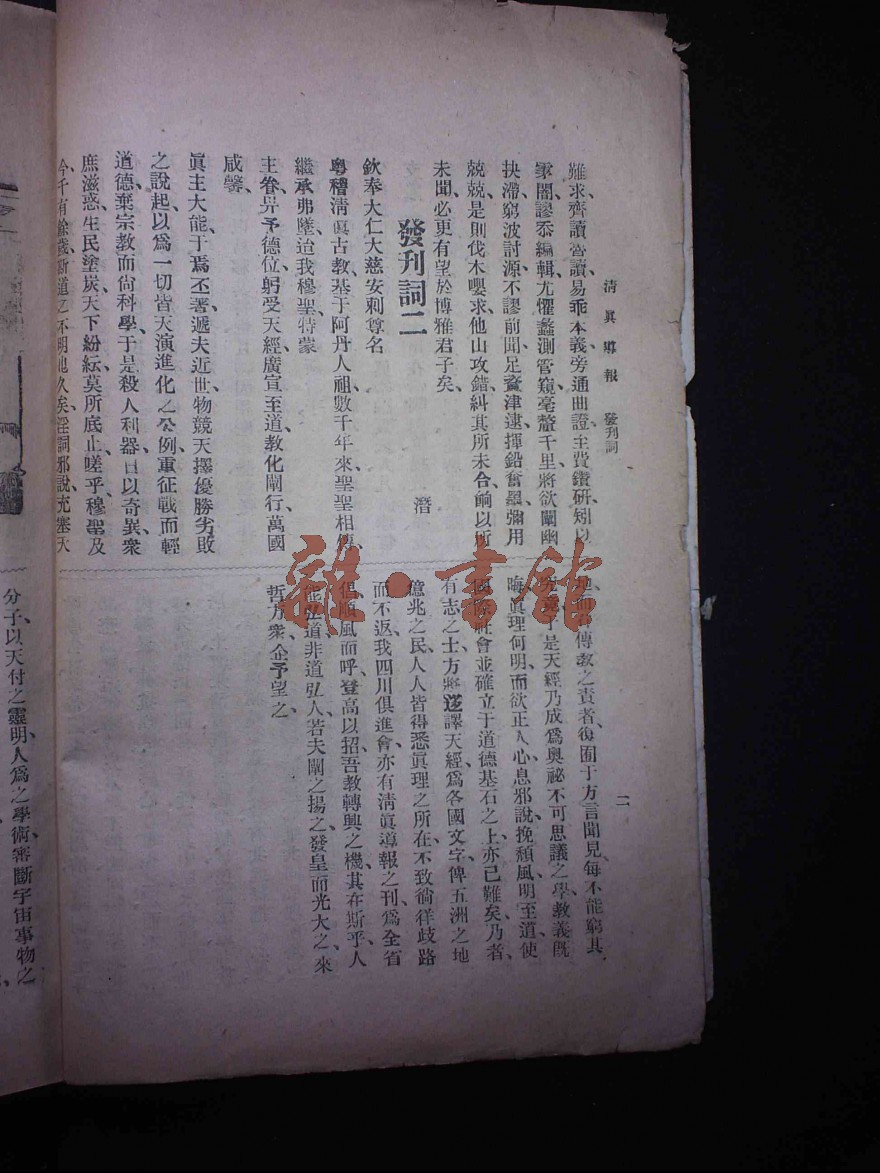 清眞導報 發刊詞
二
難求齊讀魯讀易乖本義旁通曲證主費鑽研矧以
寡闇謬忝編輯尤懼蠡測管窺毫釐千里將欲闡幽
抉滯窮波討源不謬前聞足資津逮揮鉛奮墨彌用
兢兢是則伐木嚶求他山攻錯糾其所未合餉以所
未聞必更有望於博雅君子矣
發刊詞二
潛
欽奉大仁大慈安剌尊名
粤稽清眞古敎基于阿丹人祖數千年來聖聖相傳
繼承弗墜迨我穆聖特蒙
主眷畀予德位躬受天經廣宣至道敎化闡行萬國
咸馨
眞主大能于焉丕著遞夫近世物競天擇優勝劣敗
之說起以爲一切皆天演進化之公例重征戰而輕
道德棄宗敎而尙科學于是殺人利器日以奇異衆
庶滋惑生民塗炭天下紛紜莫所底止嗟乎穆聖及
今千有餘載斯道之不明也久矣淫詞邪說充塞天
地而負傳敎之責者復囿于方言聞見每不能窮其
究竟于是天經乃成爲奧祕不可思議之學敎義旣
晦眞理何明而欲正人心息邪說挽頹風明至道使
國際社會並確立于道德基石之上亦已難矣乃者
有志之士方將迻譯天經爲各國文字俾五洲之地
億兆之民人人皆得悉眞理之所在不致徜徉歧路
而不返我四川俱進會亦有淸眞導報之刊爲全省
倡順風而呼登高以招吾敎轉興之機其在斯乎人
能弘道非道弘人若夫闡之揚之發皇而光大之來
哲方衆企予望之
分子以天付之靈明人爲之學術審斷宇宙事物之
雜·書館